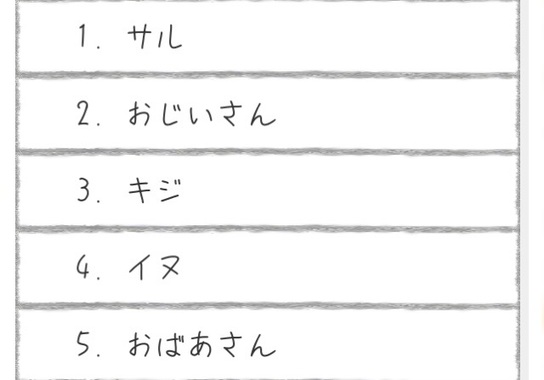 1. サル
2. おじいさん
3. キジ
4. イヌ
5. おばあさん